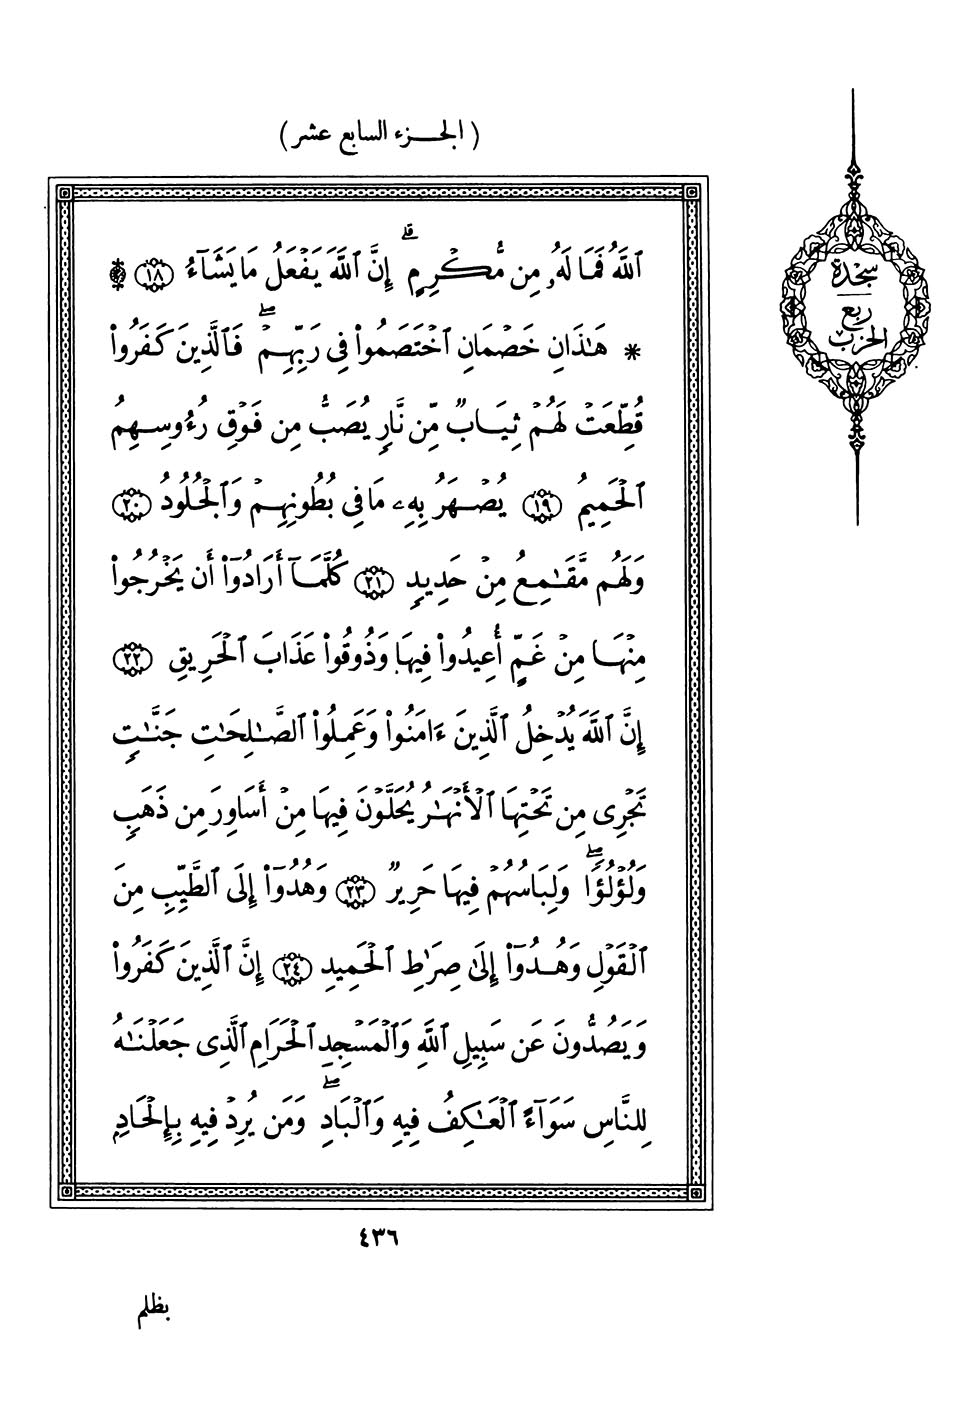 (الجزء السابع عشر)
سجدة
ربع
الحزب
ٱللَّهُ فَمَا لَهُۥ مِن مُّكْرِمٍ ۚ إِنَّ ٱللَّهَ يَفْعَلُ مَا يَشَآءُ ١٨ ۩
* هَـٰذَانِ خَصْمَانِ ٱخْتَصَمُوا۟ فِى رَبِّهِمْ ۖ فَٱلَّذِينَ كَفَرُوا۟
قُطِّعَتْ لَهُمْ ثِيَابٌ مِّن نَّارٍ يُصَبُّ مِن فَوْقِ رُءُوسِهِمُ
ٱلْحَمِيمُ ١٩ يُصْهَرُ بِهِۦ مَا فِى بُطُونِهِمْ وَٱلْجُلُودُ ٢٠
وَلَهُم مَّقَـٰمِعُ مِنْ حَدِيدٍ ٢١ كُلَّمَآ أَرَادُوٓا۟ أَن يَخْرُجُوا۟
مِنْهَا مِنْ غَمٍّ أُعِيدُوا۟ فِيهَا وَذُوقُوا۟ عَذَابَ ٱلْحَرِيقِ ٢٢
إِنَّ ٱللَّهَ يُدْخِلُ ٱلَّذِينَ ءَامَنُوا۟ وَعَمِلُوا۟ ٱلصَّـٰلِحَـٰتِ جَنَّـٰتٍ
تَجْرِى مِن تَحْتِهَا ٱلْأَنْهَـٰرُ يُحَلَّوْنَ فِيهَا مِنْ أَسَاوِرَ مِن ذَهَبٍ
وَلُؤْلُؤًا ۖ وَلِبَاسُهُمْ فِيهَا حَرِيرٌ ٢٣ وَهُدُوٓا۟ إِلَى ٱلطَّيِّبِ مِنَ
ٱلْقَوْلِ وَهُدُوٓا۟ إِلَىٰ صِرَٰطِ ٱلْحَمِيدِ ٢٤ إِنَّ ٱلَّذِينَ كَفَرُوا۟
وَيَصُدُّونَ عَن سَبِيلِ ٱللَّهِ وَٱلْمَسْجِدِ ٱلْحَرَامِ ٱلَّذِى جَعَلْنَـٰهُ
لِلنَّاسِ سَوَآءً ٱلْعَـٰكِفُ فِيهِ وَٱلْبَادِ ۖ وَمَن يُرِدْ فِيهِ بِإِلْحَادٍ
٤٣٦
بظلم